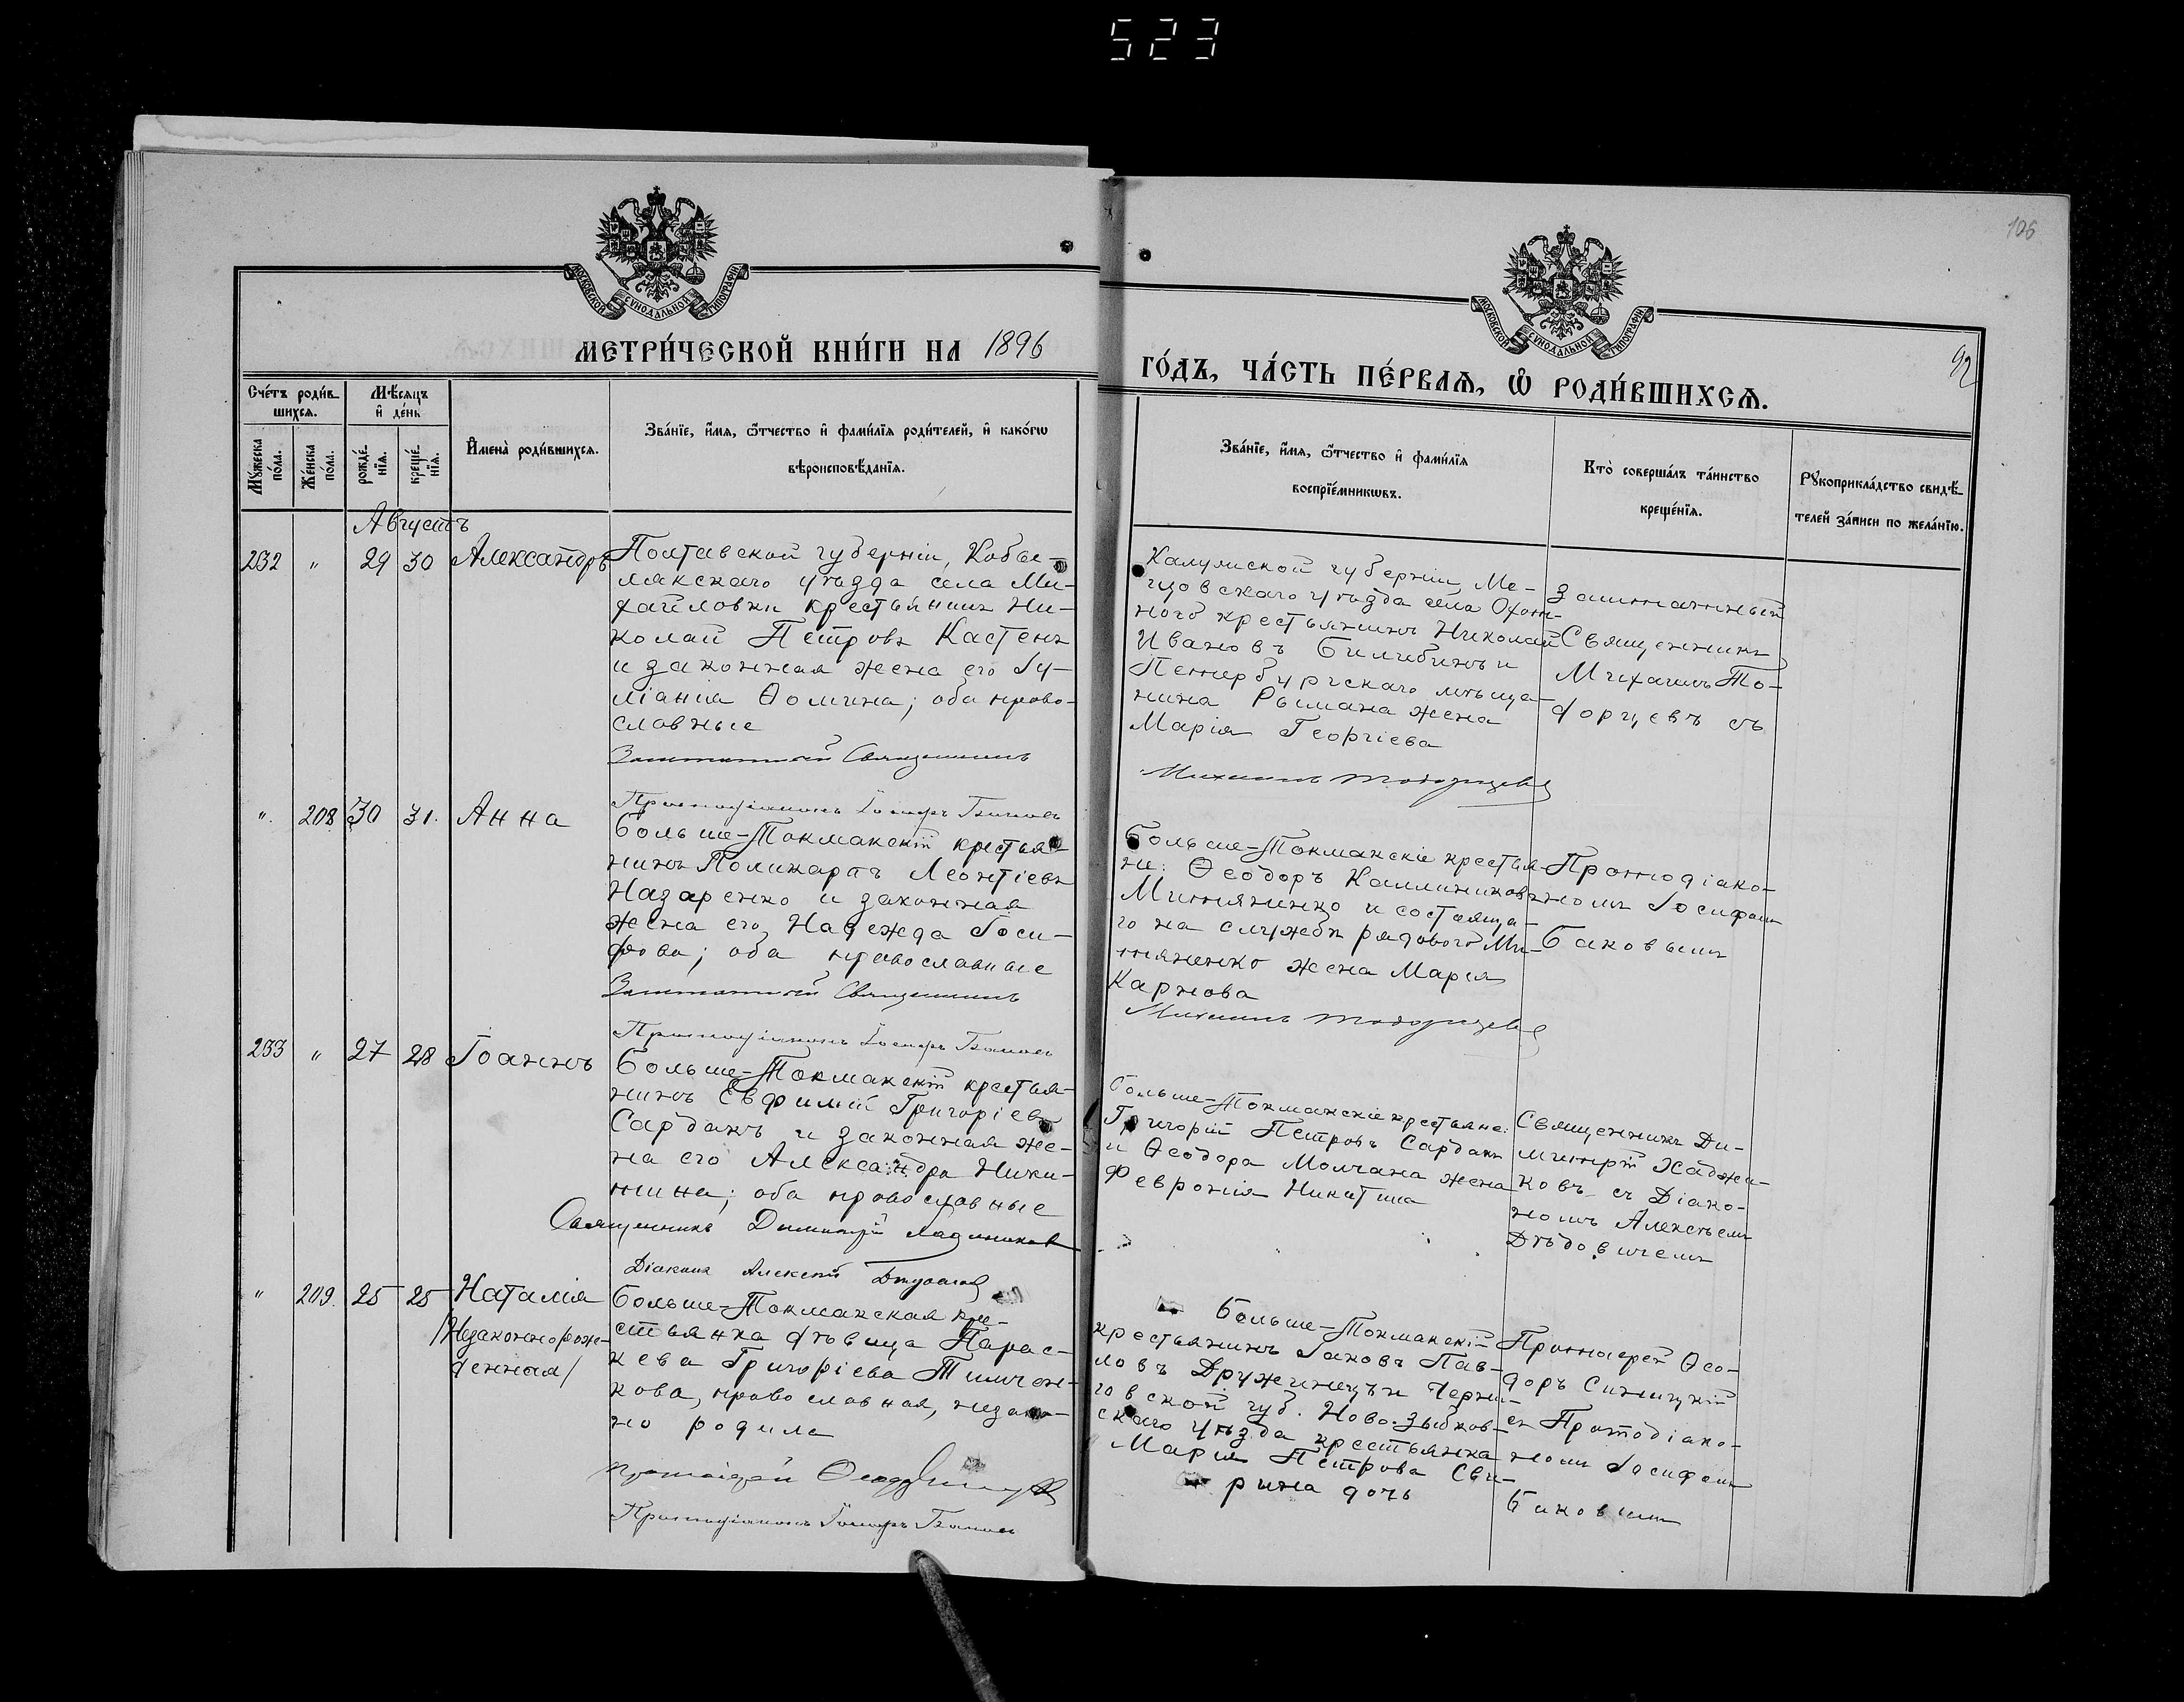 523
106
92
МОСКОВСКОЙ СУНОДАЛЬНОЙ ТИПОГРАФІИ
МОСКОВСКОЙ СУНОДАЛЬНОЙ ТИПОГРАФІИ
МЕТРИ́ЧЕСКОЙ КНИ́ГИ НА 1896
ГО́ДЪ, ЧА́СТЬ ПЕ́РВАѦ, Ѽ РОДИ́ВШИХСѦ.
Сче́тъ роди́в-
шихся.
Мѣ́сяцъ
и де́нь
Мꙋ́жеска по́ла.
Же́нска по́ла.
рожде́-
нїѧ.
креще́-
нїѧ.
Имена̀ роди́вшихсѧ.
Зва́нїе, и́мѧ, ѻ́тчество и фами́лїѧ роди́телей, и како́гѡ
вѣроисповѣ́данїѧ.
Зва́нїе, и́мѧ, ѻ́тчество и фами́лїѧ
воспрїе́мникѡвъ.
Кто̀ соверша́лъ та́инство
креще́нїѧ.
Рꙋкоприкла́дство свидѣ́-
телей за́писи по жела́нїю.
Августъ
232 " 29 30 Александръ
Полтавской губерніи, Кобе-
лякскаго уѣзда села Ми-
хайловки крестьянинъ Ни-
колай Петровъ Кастенъ
и законная жена его Іу-
ліанія Ѳомина; оба право-
славные
Заштатный Священникъ
Калужской губерніи, Ме-
щовскаго уѣзда села
крестьянинъ Николай
Ивановъ Билибинъ и
Петербургскаго мѣща-
нина Рымана жена
Марія Георгіева
Михаилъ
Заштатный
Священникъ
Михаилъ То-
форцевъ съ
". 208 30 31. Анна
Протодіаконъ Іосифъ Баковъ
Больше-Токмакскій крестья-
нинъ Поликарпъ Леонтіевъ
Назаренко и законная
жена его, Надежда Іоси-
фова; оба православные
Заштатный Священникъ
Больше-Токмакскіе крестья-
не: Ѳеодоръ Каллиниковъ
Митяненко и состояща-
го на службѣ рядового Ми-
тяненко жена Марія
Карпова
Михаилъ
Протодіако-
номъ Іосифомъ
Баковымъ
233 " 27 28 Іоаннъ
Протодіаконъ Іосифъ Баковъ
Больше-Токмакскій крестья-
нинъ Евфимій Григоріевъ
Сарданъ и законная же-
на его Александра Ники-
тина; оба православные
Священникъ Димитрій
Діаконъ Алексѣй
Больше-Токмакскіе крестьяне:
Григорій Петровъ Сарданъ
и Ѳеодора Молчана жена
Февронія Никитина
Священникъ Ди-
митрій Хаджи-
ковъ съ Діако-
номъ Алексѣемъ
Дѣдовичемъ
" 209. 25 25 Наталія
/Незаконнорож-
денная/
Больше-Токмакская кре-
стьянка дѣвица Парас-
кева Григоріева Тимчен-
кова, православная, незакон-
но родила
Протоіерей Ѳеодоръ
Протодіаконъ Іосифъ Баковъ
Больше-Токмакскій
крестьянинъ Іаковъ Пав-
ловъ Дружинецъ и Черни-
говской губ. Ново-Зыбков-
скаго уѣзда крестьянка
Марія Петрова Сви-
рина дочь
Протоіерей Ѳео-
доръ Синицкій
съ Протодіако-
номъ Іосифомъ
Баковымъ